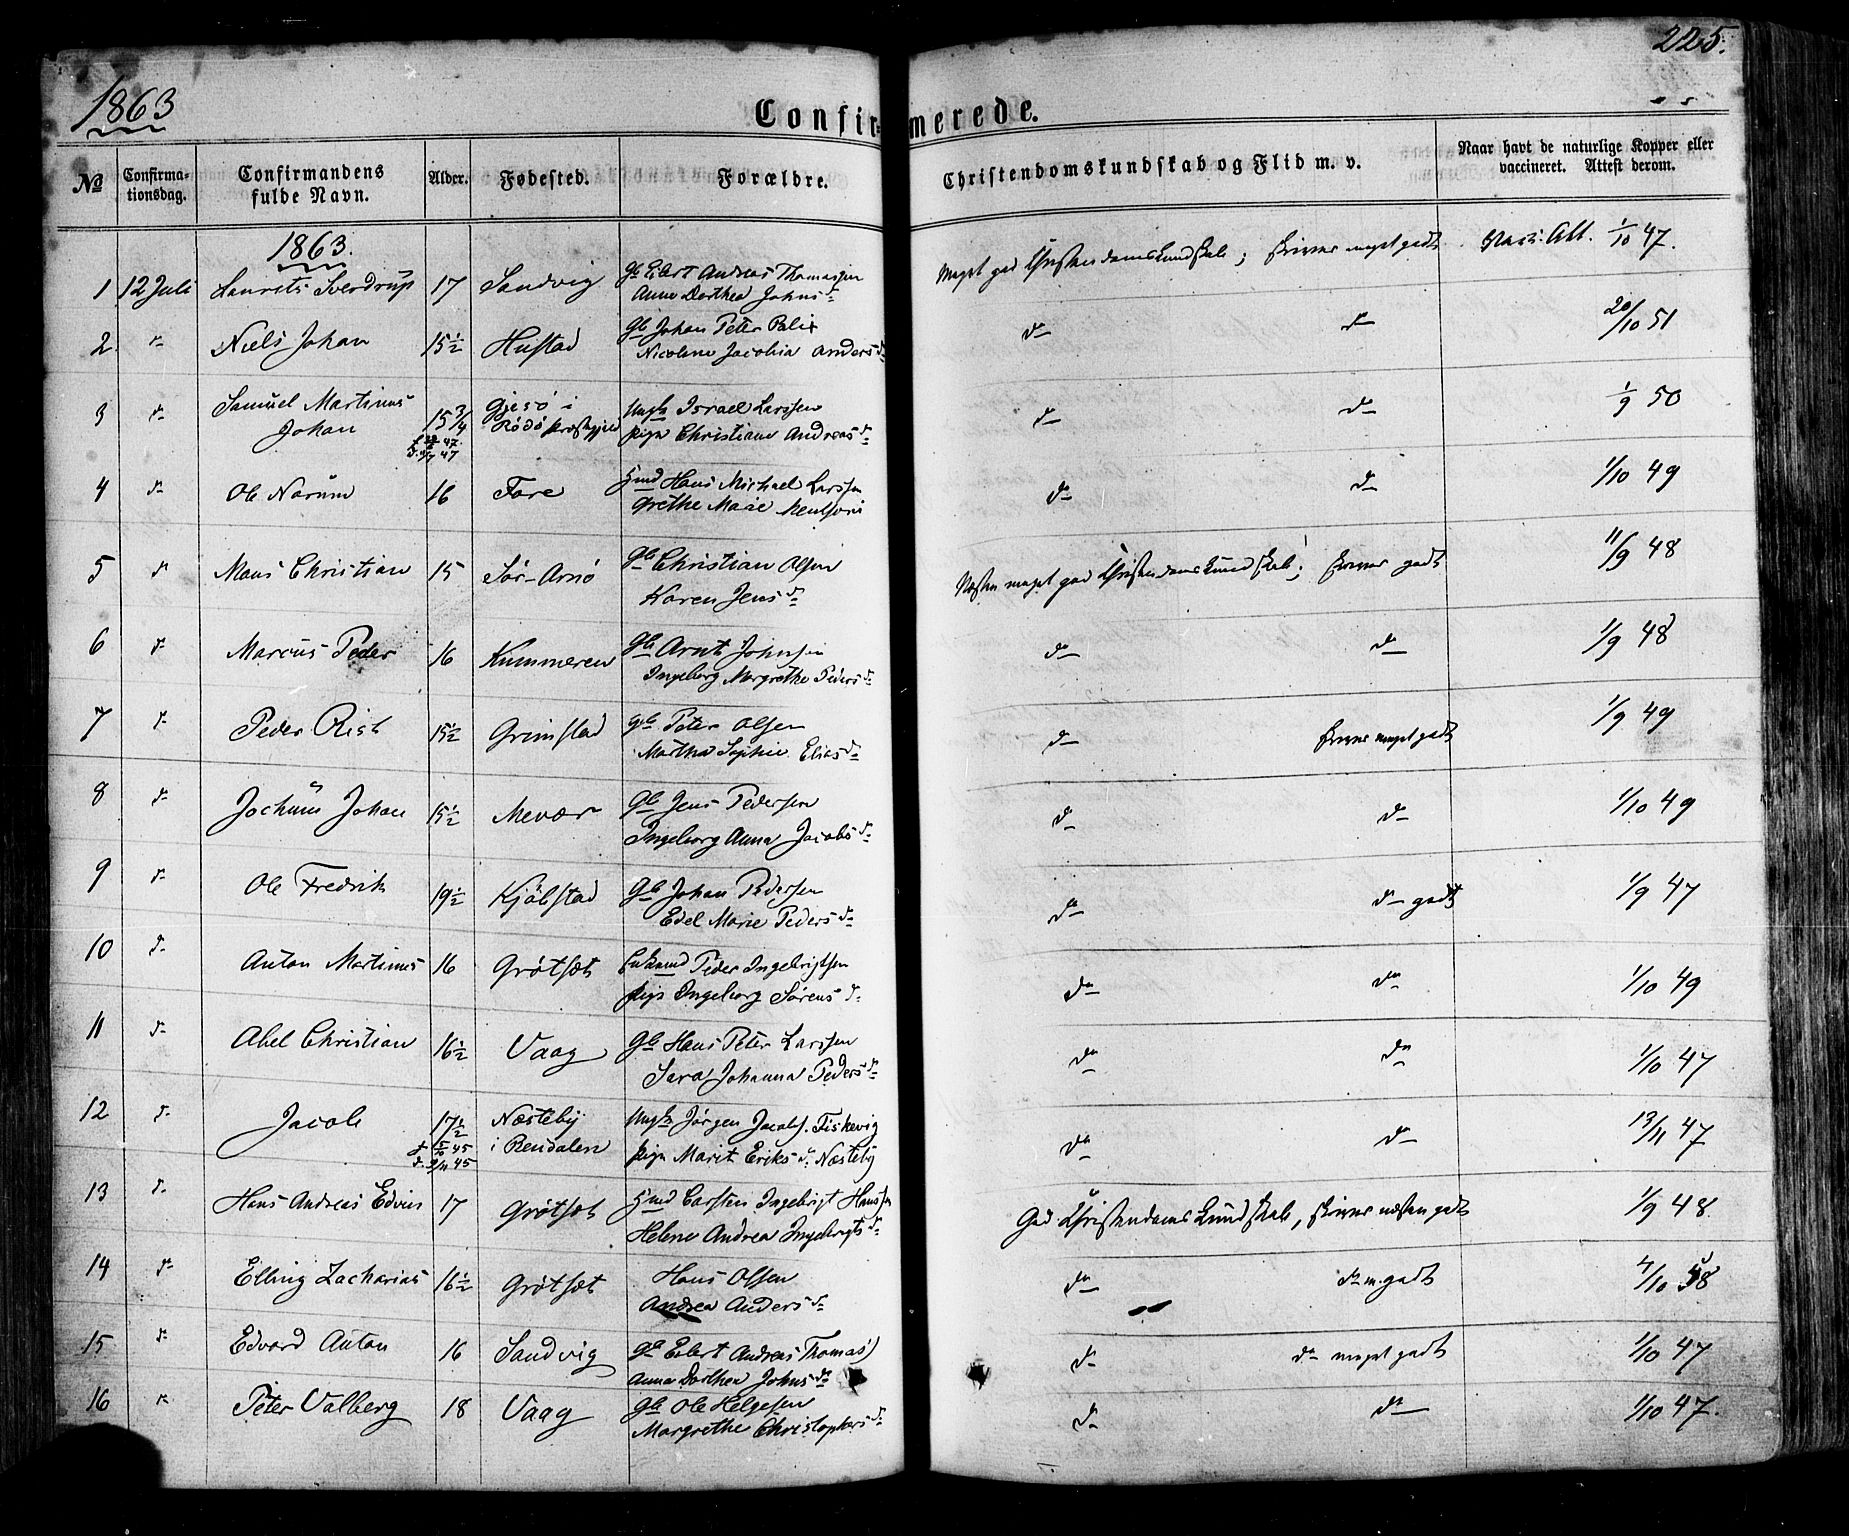 1863
225.
Confir-merede.
No
Confirma-
tionsdag.
Confirmandens
fulde Navn.
Alder.
Fødested.
Forældre.
Christendomskundskab og Flid m. v.
Naar havt de naturlige Kopper eller
vaccineret. Attest derom.
1863.
1 12 Juli Laurits Sverdrup 17 Sandvig Gb Eilert Andreas Thomassen
Anne Dorthea Johnsd.
Meget god Christendomskundskab; skriver meget godt Vacc. Att. 1/10 47.
2. d. Niels Johan 15 1/2 Hustad Gb Johan Peter
Nicoline Jacobia Andersd.
do do 20/10 51
3 d. Samuel Martinus
Johan
15 3/4 Gjesø i
Rødø Præstegjeld
Ungk Israel Larssen
pige Christiane Andreasd.
47
47
do do 1/9 50
4 d. Ole Norum 16 Fore Hmd Hans Michael Larssen
Grethe Marie
do do 1/10 49
5 d. Mons Christian 15 Sør-Arnø Gb Christian Olsen
Karen Jensd.
Næsten meget god Christendomskundskab; skriver godt 11/9 48
6 d. Marcus Peder 16 Kummeren Gb Arnt Johnsen
Ingeborg Margrethe Pedersd.
do do 1/9 48
7 d. Peder Rist 15 1/2 Grimstad Gb Peter Olsen
Martha Sophie Eliasd.
do skriver meget godt 1/9 49
8 d. Jochum Johan 15 1/2 Mevær Gb Jens Pedersen
Ingeborg Anna Jacobsd.
do do 1/10 49
9 d. Ole Fredrik 19 1/2 Kjøbstad Gb Johan Pedersen
Edel Marie Pedersd.
do do godt 1/9 47
10 d. Anton Martinus 16 Grøtset Enkemd Peder Ingebrigtsen
pige Ingeborg Sørensd.
do do 1/10 49
11 d. Abel Christian 16 1/2 Vaag Gb Hans Peter Larssen
Sara Johanna Pedersd.
do do 1/10 47
12 d. Jacob 17 1/2 Næsteby
i Rendalen
Ungk Jørgen Jacobs. Fiskevig
pige Marit Eriksd. Næsteby
45
45
do do 13/11 47
13 d. Hans Andreas Edvin 17 Grøtset Hmd Carsten Ingebrigt Hanssen
Helene Andrea Ingebrigtsd.
God Christendomskundskab, skriver næsten godt 1/9 48.
14 d. Elling Zacharias 16 1/2 Grøtset Hans Olsen
Andrea Andersd.
do do m. godt
15 d. Edvard Anton 16 Sandvig Gb Eilert Andreas Thomas)
Anna Dorthea Johnsd.
do do meget godt 1/10 47
16 d. Peter Valberg 18 Vaag Gb Ole Helgesen
Margrethe Christophersd.
do do 1/10 47.